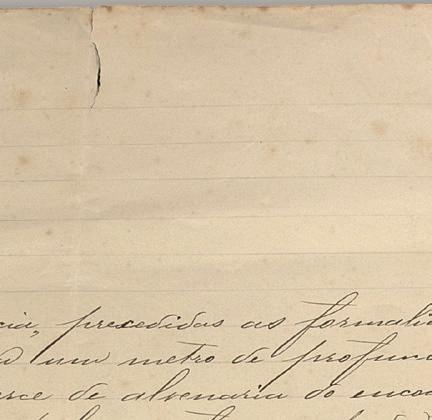 cia, precedidas as formali
um metro de profun
erce de alvenaria do enco